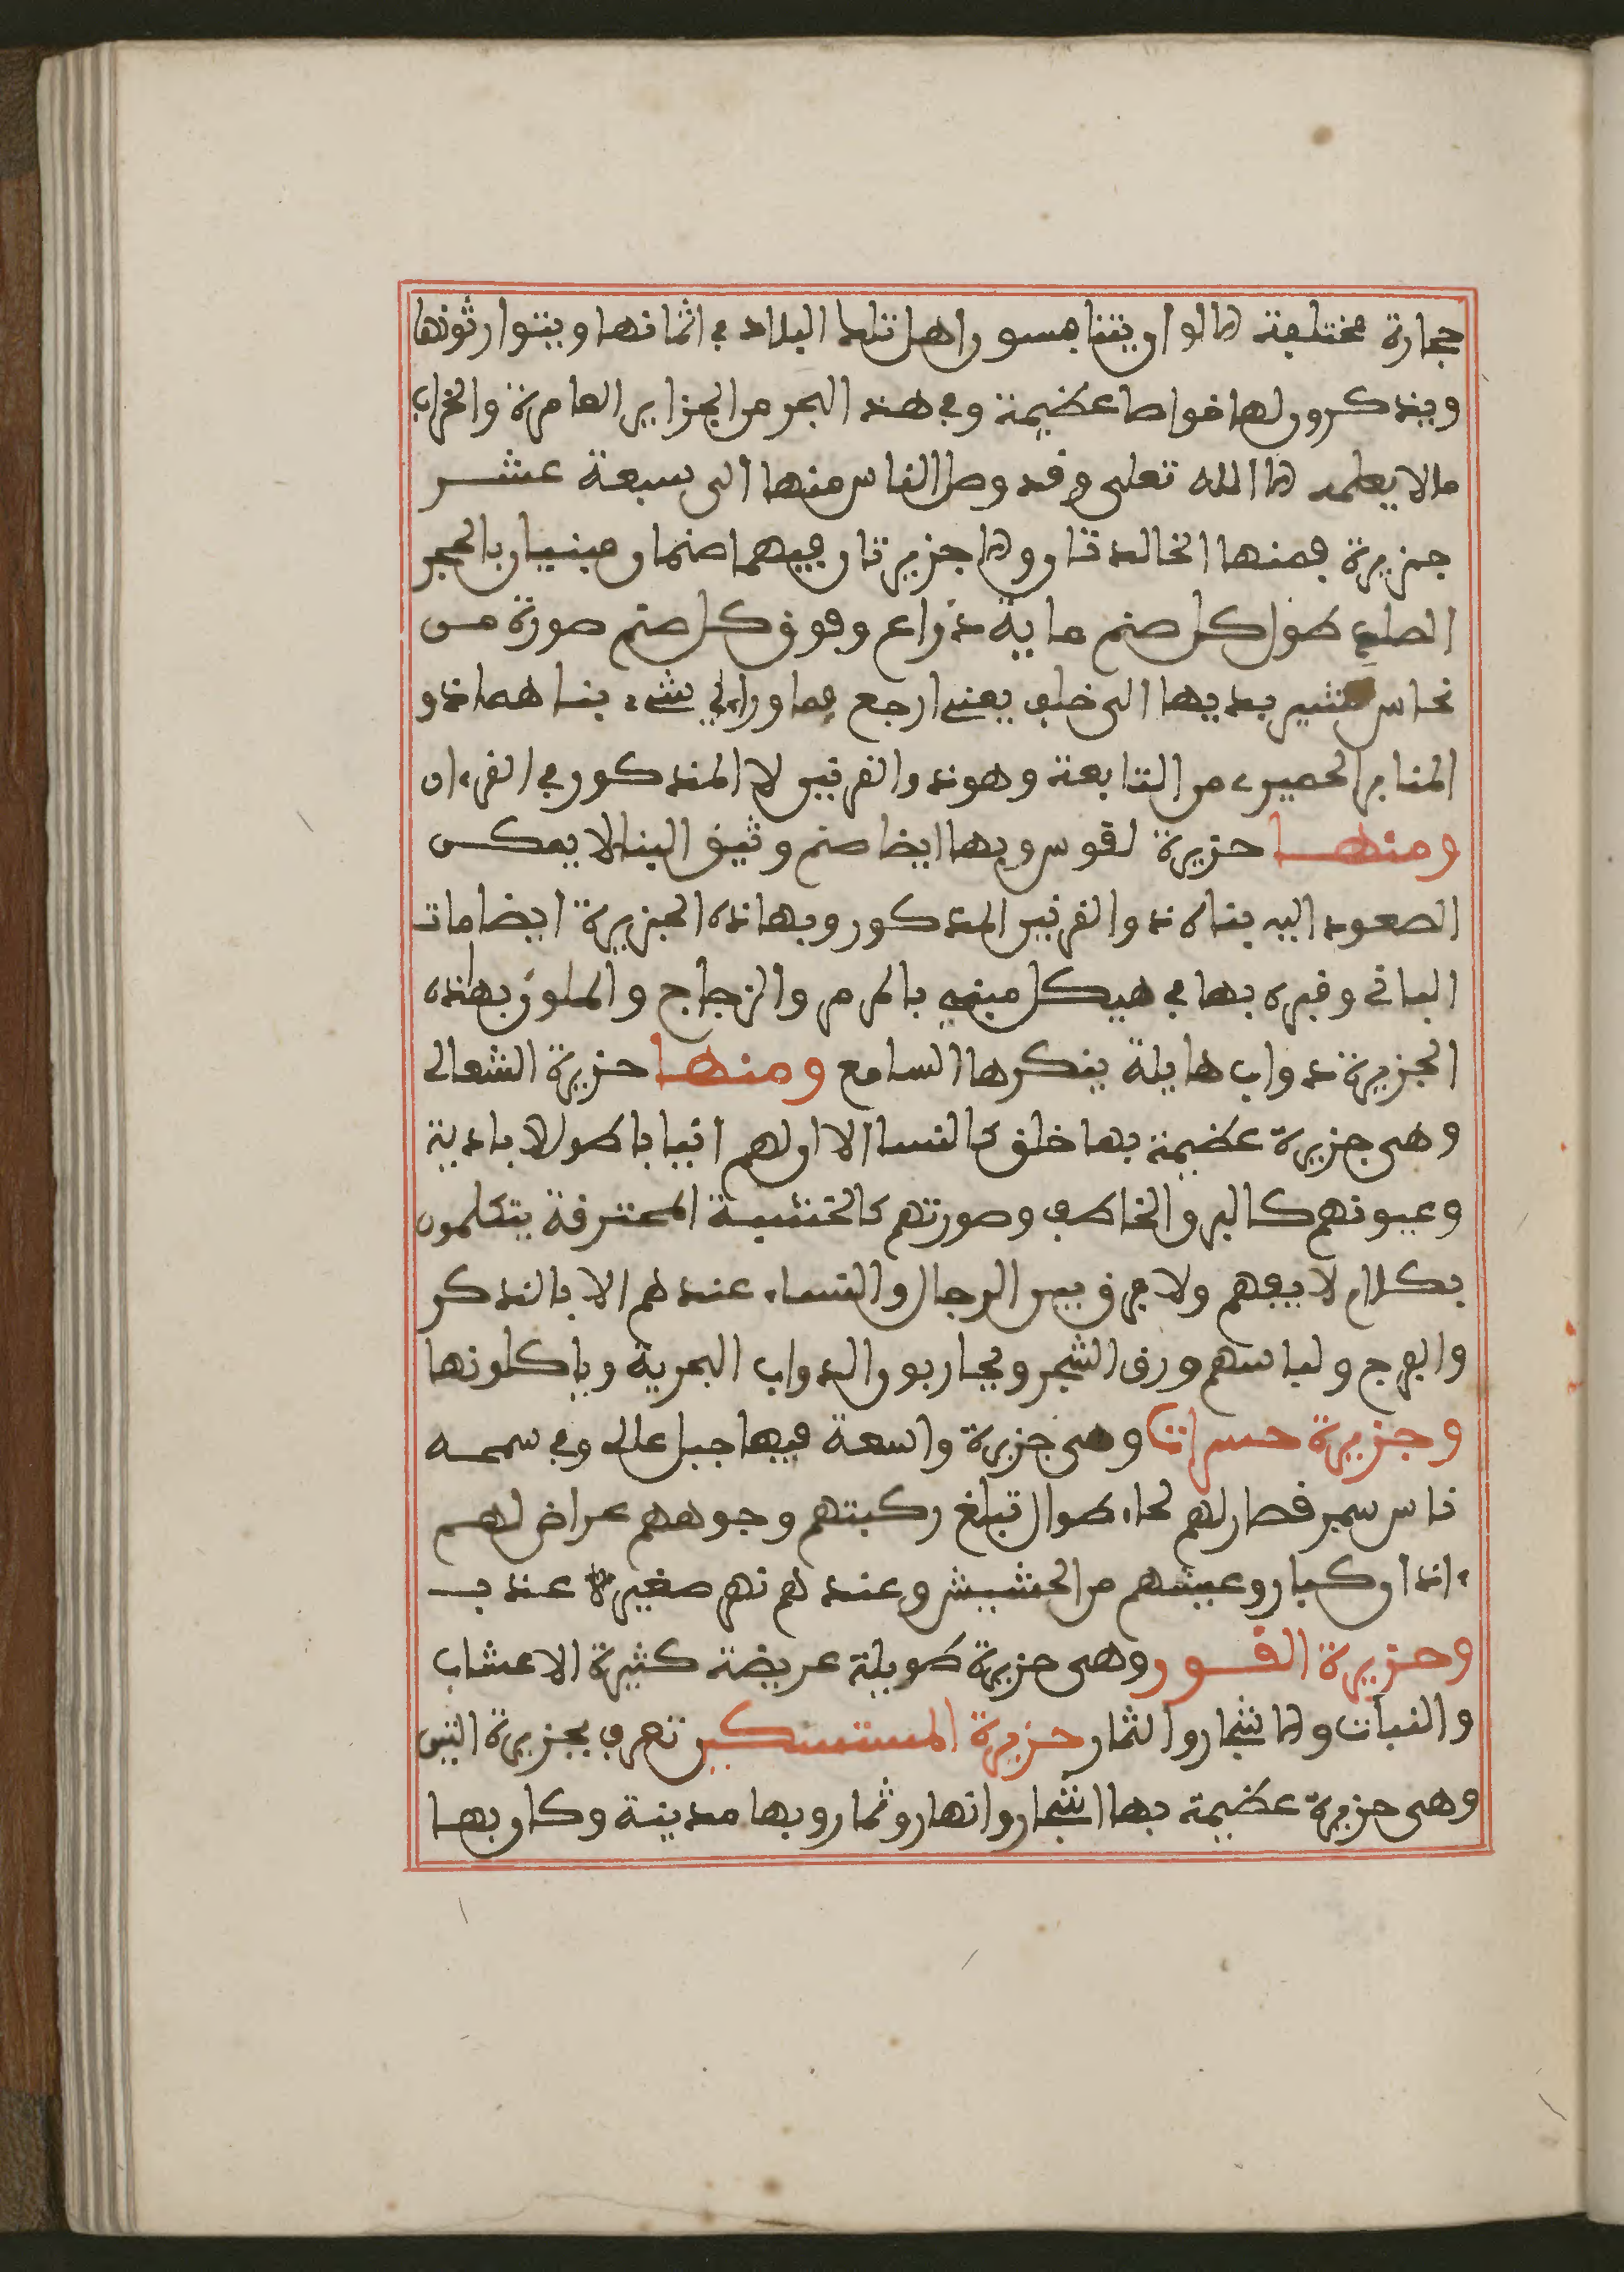 حجارة مختلفة الالوان يتنافسون اهل تلك البلاد في اثمانها ويتوارثونها
ويذكرون لها خواصا عظيمة وفي هذا البحر من الجزاير العامرة والخراب
مالا يعلمه الا الله تعلى وقد وصل الناس منها الى سبعة عشر
جزيرة فمنها الخالدتان وهما جزيرتان فيهما صنمان مبنيان بالحجر
الصلب طول كل صنم ماية ذراع وفوق كل صنم صورة من
نحاس تشير بيديها الى خلف يعني ارجع فما وراءي شيء بناهما ذو
المنار الحميري من التتابعة وهو ذو القرنين لا المذكور في القرءان
ومنها جزيرة لقوس وبها ايضا صنم وثيق البنا لا يمكن
الصعود اليه بناه ذو القرنين المذكور وبهاذه الجزيرة ايضا مات
الباني وقبره بها في هيكل مبني بالمرمر والزجاج والملون بهاذه
الجزيرة دواب هايلة ينكرها السامع ومنها جزيرة الشعالى
وهى جزيرة عظيمة بها خلق كالنسا الا ان لهم انيابا طولا بادية
وعيونهم كالبرق الخاطف وصورتهم كالخشبة المحترقة يتكلمون
بكلام لا يفهم ولا فرق بين الرجال والنساء عندهم الا بالذكر
والفرج ولباسهم ورق الشجر ويحاربون الدواب البحرية وياكلونها
وجزيرة حسرات وهى جزيرة واسعة فيها جبل عالى وفي سمحه
ناس سمر قصار لهم لحاء طوال تبلغ ركبتهم وجوههم عراض لهم
ءاذان كبار وعيشهم من الحشيش وعندهم نهر صغير عذب
وجزيرة الغور وهى جزيرة طويلة عريضة كثيرة الاعشاب
والنبات والاشجار والثمار جزيرة المستشكين تعرف بجزيرة التنين
وهى جزيرة عظيمة بها اشجار وانهار وثمار وبها مدينة وكان بها